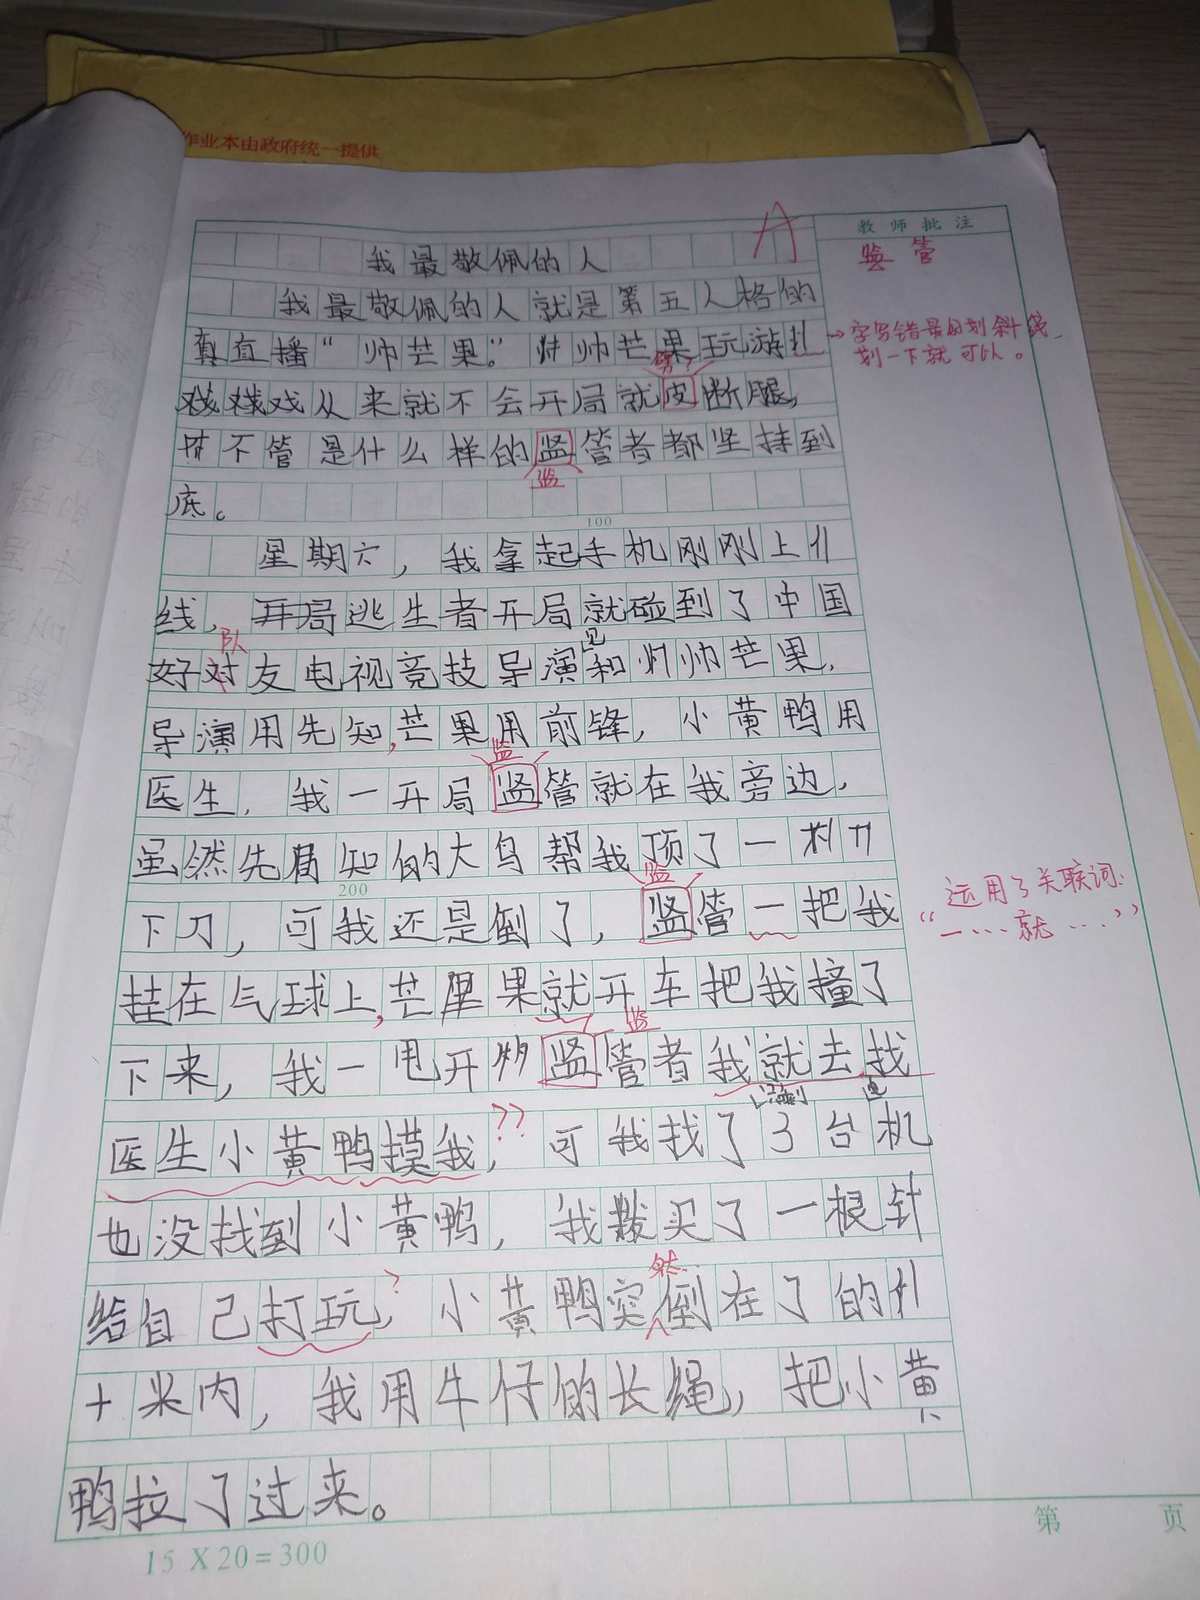 作业本由政府统一提供
教师批注
A
我最敬佩的人
监管
我最敬佩的人就是第五人格的
直播“帅芒果”。帅芒果玩游
字写错最多划斜线
划一下就可以。
戏从来就不会开局就皮断腿，
不管是什么样的监管者都坚持到
监
底。
100
星期六，我拿起手机刚刚上
线，逃生者开局就碰到了中国
队
见
好对友电视竞技导演和帅芒果，
导演用先知，芒果用前锋，小黄鸭用
监
医生，我一开局监管就在我旁边，
虽然先知的大鸟帮我顶了一
监
200
下刀，可我还是倒了，监管一把我
运用了关联词：
“一……就……”
挂在气球上，芒果就开车把我撞了
监
下来，我一甩开监管者我就去找
医生小黄鸭摸我，??可我找了3台机
也没找到小黄鸭，我买了一根针
然
给自己打玩，?小黄鸭突倒在了的
十米内，我用牛仔的长绳，把小黄
鸭拉了过来。
15 X 20=300
第 页